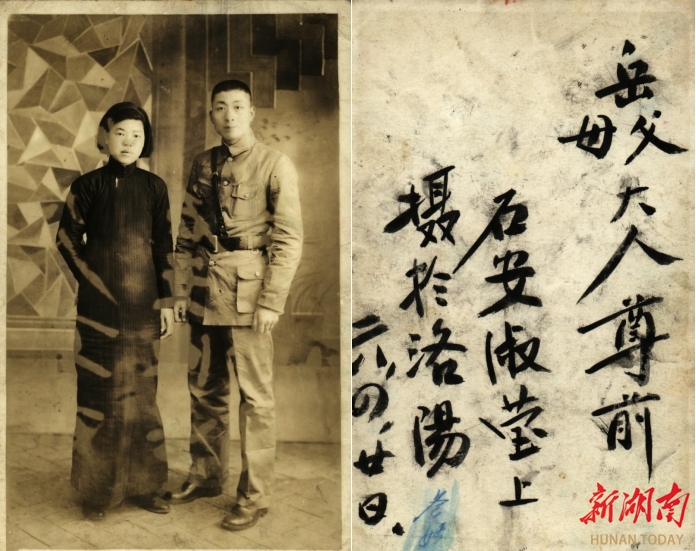 岳父母大人尊前
石安淑莹上
摄於洛陽
二八、四、廿日、
新湖南
HUNAN.TODAY